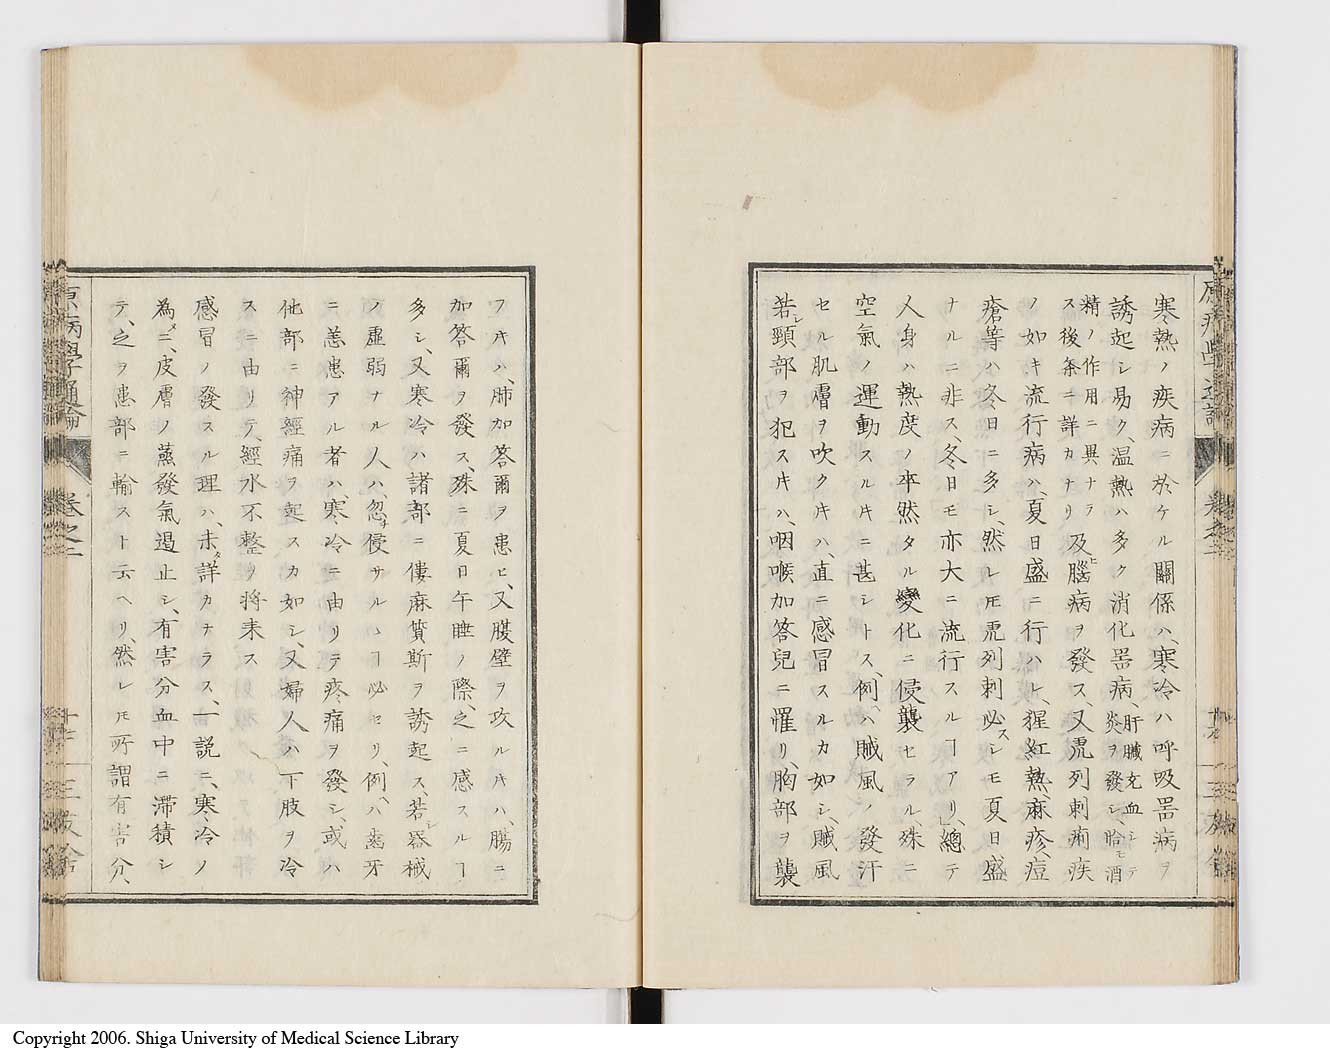 寒熱ノ疾病ニ於ケル關係ハ、寒冷ハ呼吸器病ヲ
誘起シ易ク、温熱ハ多ク消化器病、肝臓充血シテ炎ヲ發シ、恰モ酒
精ノ作用ニ異ナラス後条ニ詳カナリ及ヒ腦病ヲ發ス、又虎列刺痢疾
ノ如キ流行病ハ、夏日盛ニ行ハレ、猩紅熱、麻疹、痘
瘡等ハ冬日ニ多シ、然レ𪜈虎列刺必スシモ夏日盛
ナルニ非ス、冬日モ亦大ニ流行スルヿアリ、總テ
人身ハ熱度ノ卒然タル變化ニ侵襲セラル、殊ニ
空氣ノ運動スルキニ甚シトス、例ハ賊風ノ發汗
セル肌膚ヲ吹クキハ、直ニ感冒スルカ如シ、賊風
若シ頸部ヲ犯スキハ、咽喉加答兒ニ罹リ、胸部ヲ襲
フキハ、肺加答爾ヲ患ヒ、又腹壁ヲ攻ルキハ、腸ニ
加答爾ヲ發ス、殊ニ夏日午睡ノ際、之ニ感スルヿ
多シ、又寒冷ハ諸部ニ僂麻質斯ヲ誘起ス、若シ器械
ノ虚弱ナル人ハ、忽チ侵サルヽヿ必セリ例ハ齒牙
ニ恙患アル者ハ、寒冷ニ由リテ疼痛ヲ發シ、或ハ
他部ニ神經痛ヲ起スカ如シ、又婦人ハ下肢ヲ冷
スニ由リテ、經水不整ヲ将来ス
感冒ノ發スル理ハ、未タ詳カナラス、一説ニ、寒冷ノ
為メニ、皮膚ノ蒸發氣遏止シ、有害分血中ニ滞積シ
テ、之ヲ患部ニ輸スト云ヘリ、然レ𪜈所謂有害分、
原病學通論
卷之二